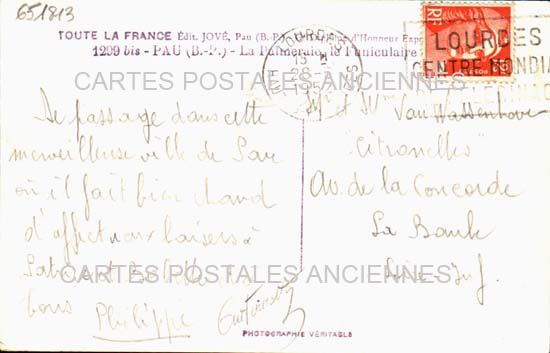 651813
TOUTE LA FRANCE Édit. JOVÉ, Pau (B.-P.) d'Honneur
1209 bis - PAU (B.-P.) - La Palmeraie, le Funiculaire
LOURDES
RF
LOURDES
CENTRE MONDIAL
CARTES POSTALES ANCIENNES
Mr et Mme Van Wassenhove
De passage dans cette
merveilleuse ville de Pau
où il fait bien chaud
d'affectueux baisers à
bons
Philippe
"Citronelles"
Av. de la Concorde
La Baule
Loire Inf.
CARTES POSTALES ANCIENNES
PHOTOGRAPHIE VÉRITABLE